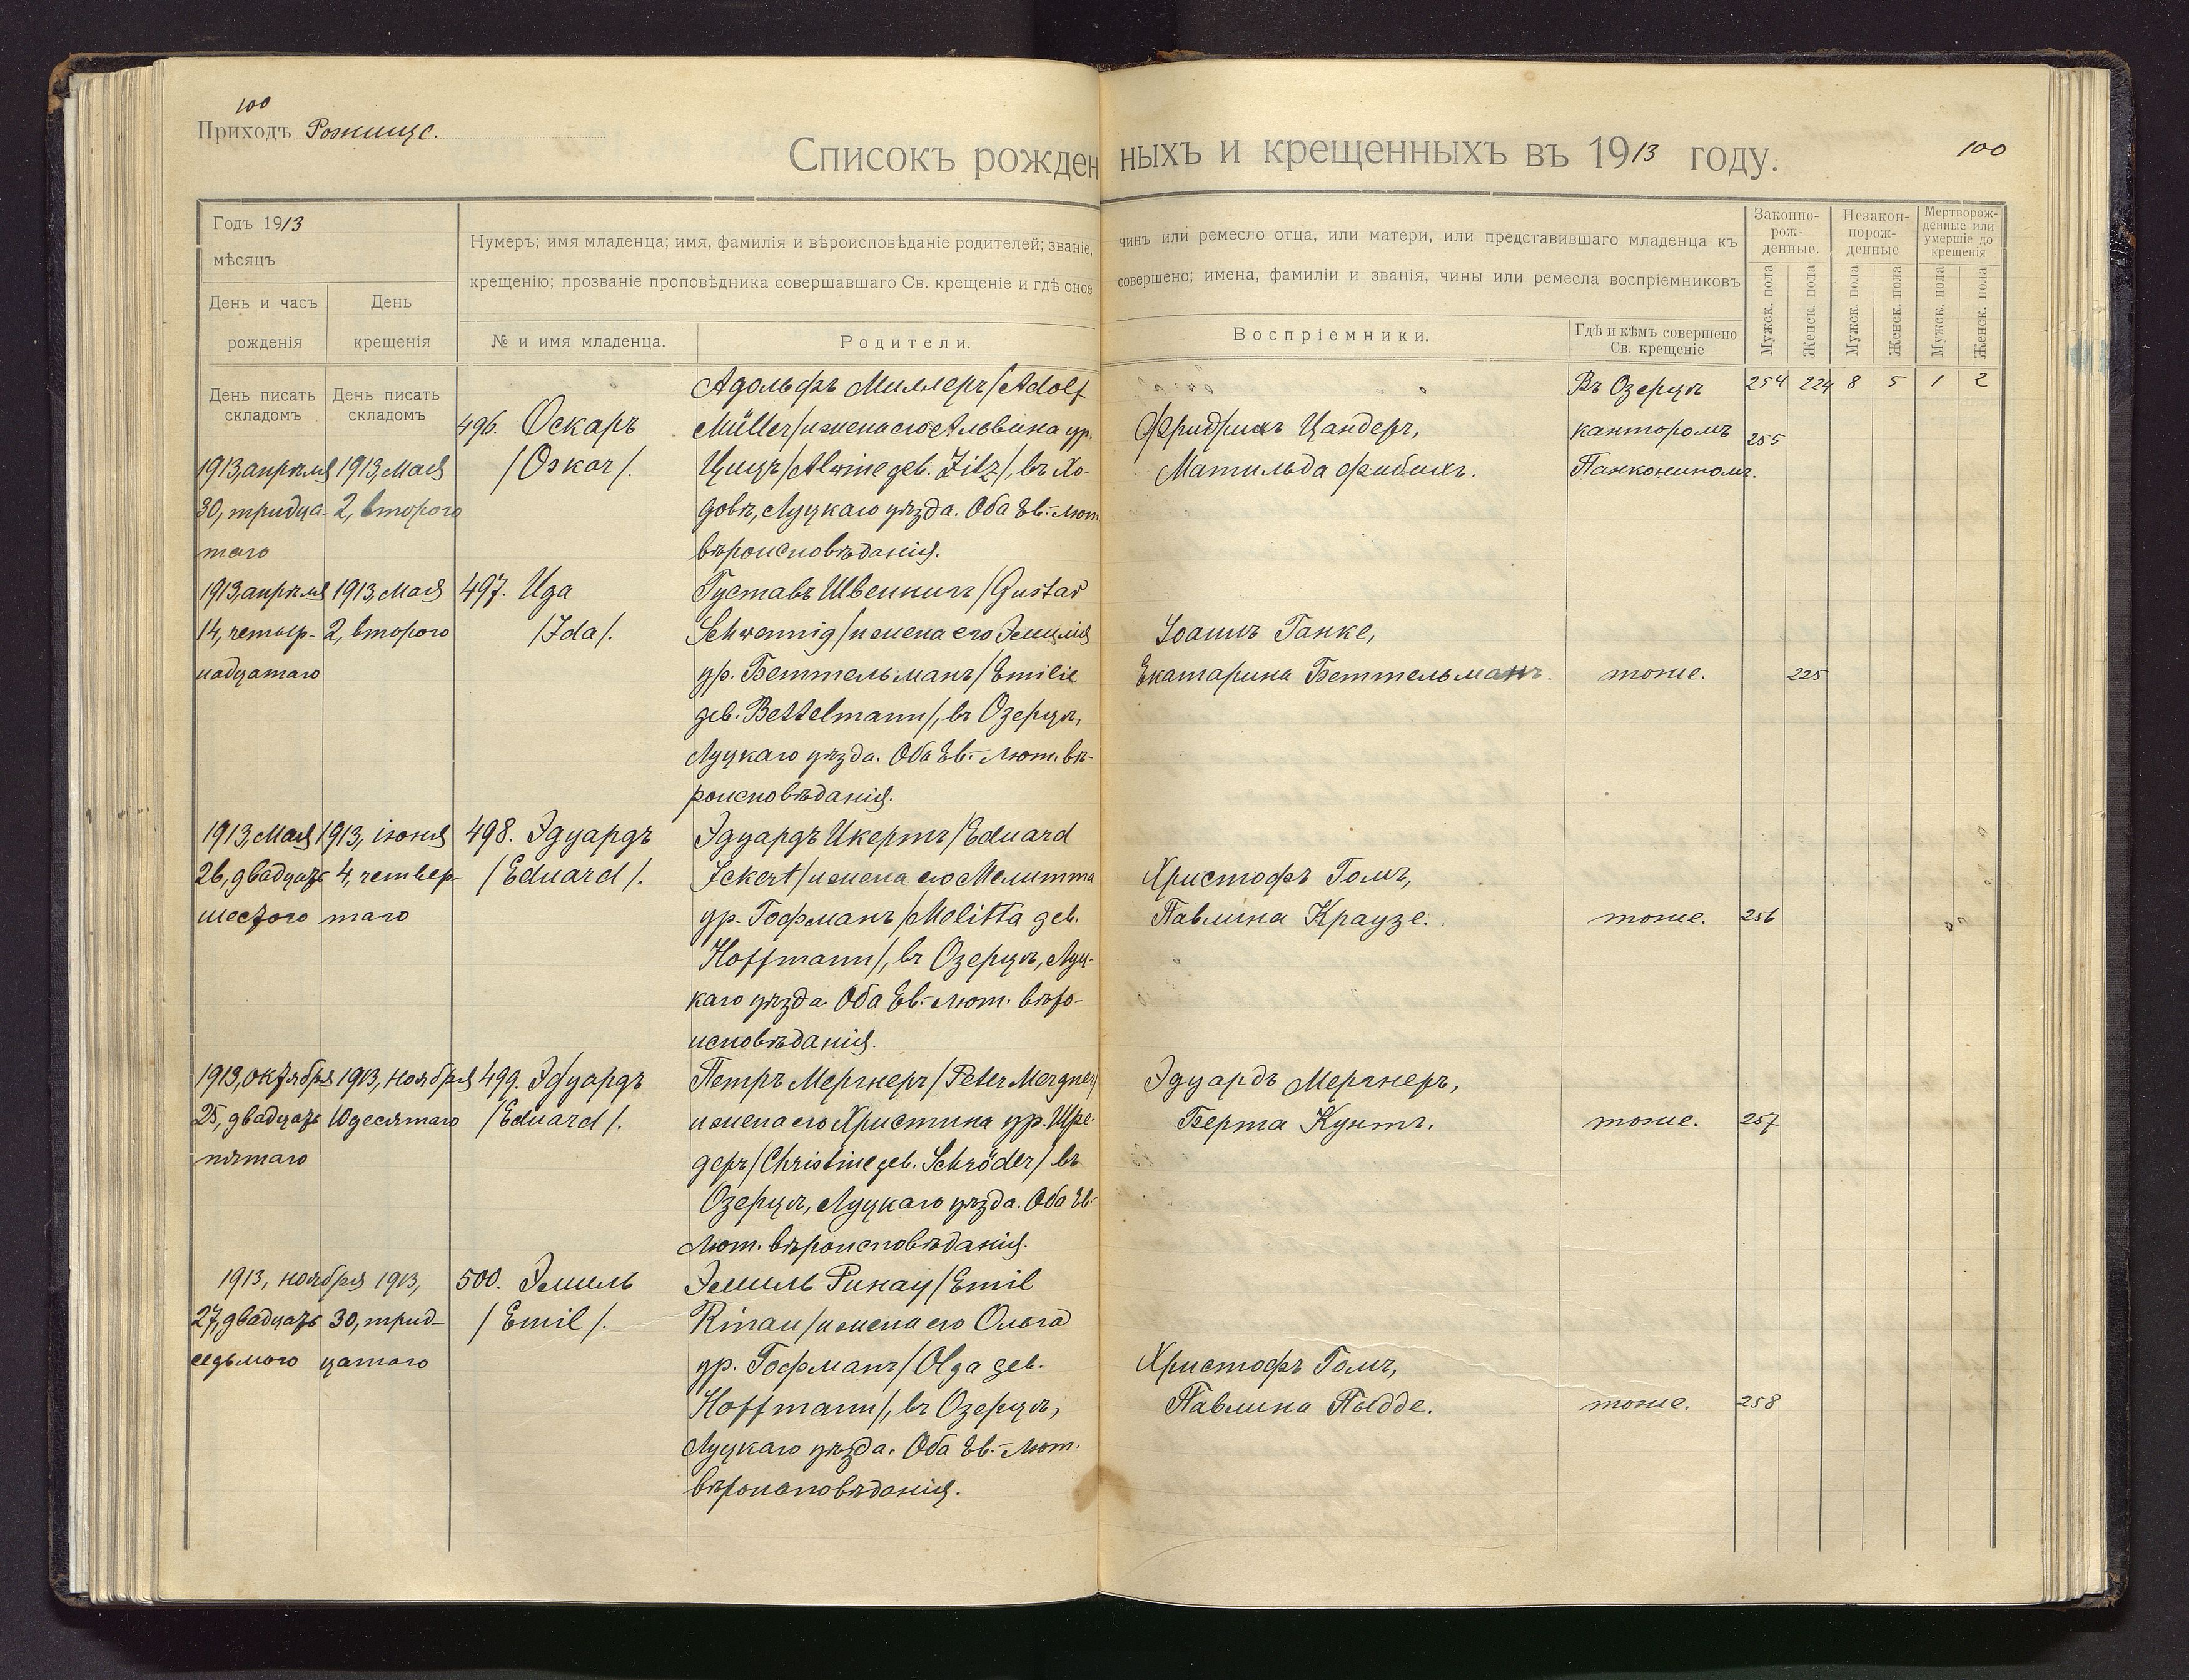 100
Приходъ Рожище.
Списокъ рожденныхъ и крещенныхъ въ 1913 году.
100
Годъ 1913
мѣсяцъ
День и часъ рожденія
День крещенія
Нумеръ; имя младенца; имя, фамилія и вѣроисповѣданіе родителей; званіе, чинъ или ремесло отца, или матери, или представившаго младенца къ
крещенію; прозваніе проповѣдника совершавшаго Св. крещеніе и гдѣ оное совершено; имена, фамиліи и званія, чины или ремесла воспріемниковъ
№ и имя младенца.
Родители.
Воспріемники.
Гдѣ и кѣмъ совершено
Св. крещеніе
Законно-
рож-
денные.
Незакон-
норож-
денные
Мертворож-
денные или
умершіе до
крещенія
Мужск. пола
Женск. пола
Мужск. пола
Женск. пола
Мужск. пола
Женск. пола
День писать
складомъ
День писать
складомъ
254 224 8 5 1 2
1913, апрѣля
30, тридца-
таго
1913, Мая
2, второго
496. Оскаръ
/Oskar/.
Адольфъ Миллеръ /Adolf
Müller/ и жена его Альвина ур.
Цицъ /Alwine geb. Zitz/, въ Хо-
довѣ, Луцкаго уѣзда. Оба Ев.-лют
вѣроисповѣданія.
Фридрихъ Цандеръ,
Матильда Фибихъ.
Въ Озерцѣ
канторомъ
Панкониномъ.
255
1913, апрѣля
14, четыр-
надцатаго
1913, Мая
2, второго
497. Ида
/Ida/.
Густавъ Швеннигъ /Gustav
Schwennig/ и жена его Эмилія
ур. Беттельманъ /Emilie
geb. Bettelmann/, въ Озерцѣ,
Луцкаго уѣзда. Оба Ев.-лют. вѣ-
роисповѣданія.
Іоаннъ Ганке,
Екатарина Беттельманъ.
тоже.
225
1913, Мая
26, двадцать
шестого
1913, іюня
4, четвер-
таго
498. Эдуардъ
/Eduard/.
Эдуардъ Икертъ /Eduard
Ickert/ и жена его Мелитта
ур. Гофманъ /Melitta geb.
Hoffmann/, въ Озерцѣ, Луц-
каго уѣзда Оба Ев.-лют. вѣро-
исповѣданія.
Христофъ Гольъ,
Павлина Краузе.
тоже.
256
1913, октября
25, двадцать
пятаго
1913, ноября
10 десятаго
499. Эдуардъ
/Eduard/.
Петръ Мергнеръ /Peter Mergner/
и жена его Христина ур. Шре-
деръ /Christine geb. Schröder/ въ
Озерцѣ, Луцкаго уѣзда. Оба Ев.-
лют. вѣроисповѣданія.
Эдуардъ Мергнеръ,
Берта Кунтъ.
тоже.
257
1913, ноября
27, двадцать
седьмого
1913,
30, трид-
цатаго
500. Эмиль
/Emil/.
Эмиль Ринау /Emil
Rinau/ и жена его Ольга
ур. Гофманъ /Olga geb.
Hoffmann/, въ Озерцѣ,
Луцкаго уѣзда. Оба Ев.-лют.
вѣроисповѣданія.
Христофъ Гольъ,
Павлина Пыдде.
тоже.
258